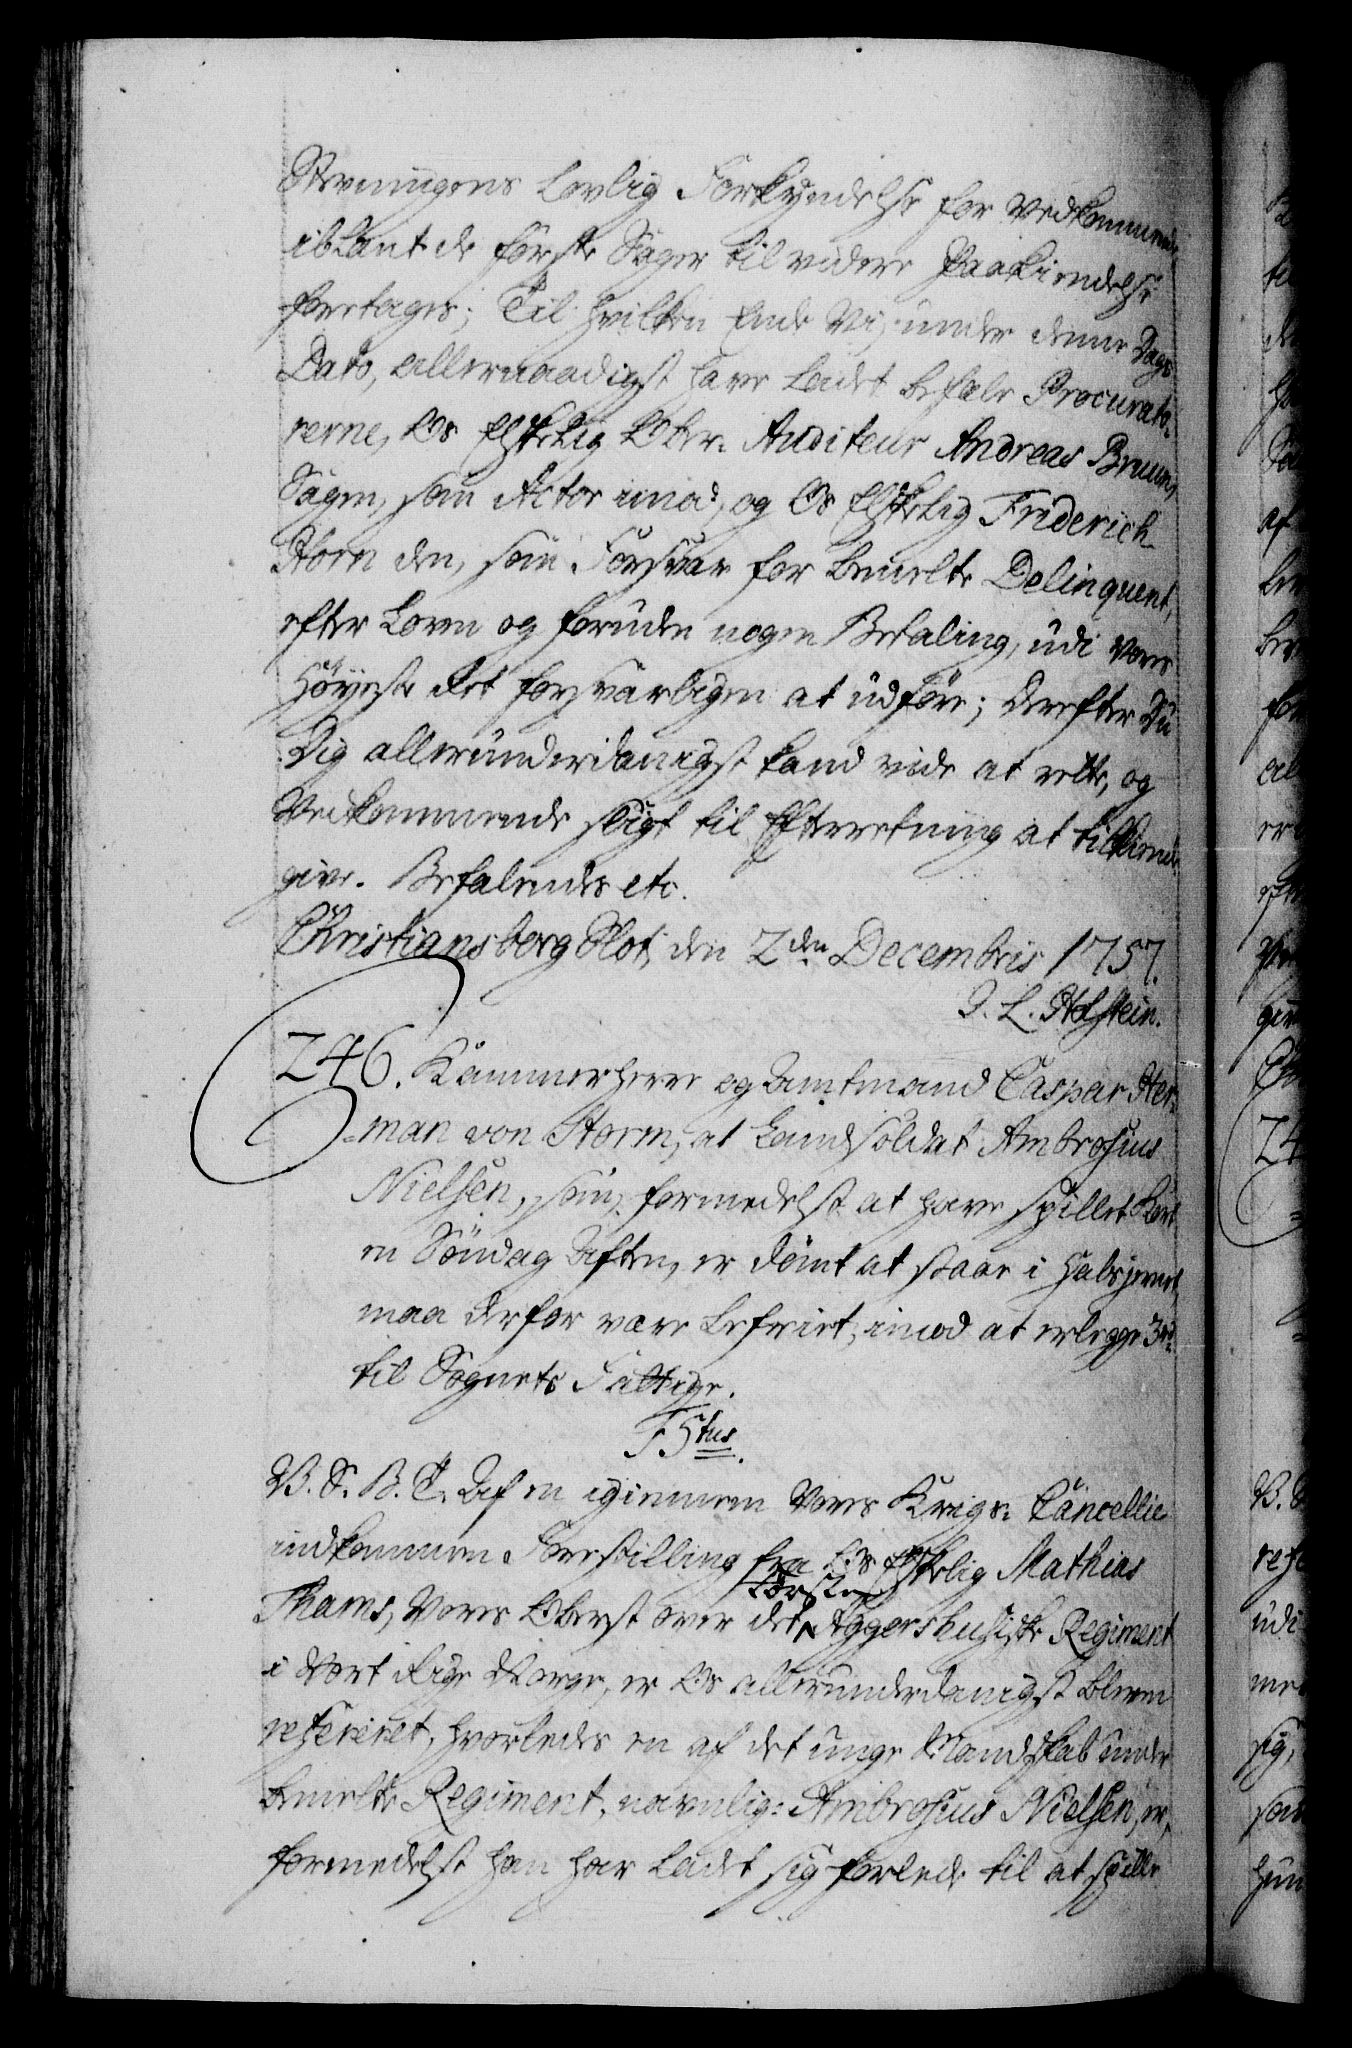 Stevningens Lovlig Forkyndelse for Vedkommende,
iblant de første Sager til videre Paakiendelse
foretages; Til hvilken Ende Vi, under denne Dags
Dato, allernaadigst have ladet befale Procurato-
rerne, Os Elskelig Ober-Auditeur Andreas Bruun,
Sagen, som Actor imod, og Os Elskelig Friderich
Horn den, som Forsvar for bemelte Delinquent,
efter Loven og foruden nogen Betaling, udi Vores
Høyeste Ret forsvarligen at udføre; Derefter Du
Dig allerunderdanigst kand vide at rette, og
Vedkommende sligt til Efterretning at tilkiende-
give. Befalendes etc.
Christiansborg Slot, den 2den Decembris 1757.
J. L. Holstein.
246. Kammerherre og Amtmand Caspar Her-
-man von Storm, at Landsoldat Ambrosius
Nielsen, som, formedelst at have spillet Kort
en Søndag Aften, er dømt at staae i Halsjernet,
maa derfor være befriet, imod at erlegge 3 rd.
til Sognets Fattige.
F5tus.
V. S. B. T. Af en igiennem Vores Krigs-Cancellie
indkommen Forestilling fra Os Elskelig Mathias
Thams, Vores Oberst over det første Aggershusiske Regiment
i Vort Rige Norge, er Os allerunderdanigst bleven
refereret, hvorledes en af det unge Mandskab under
bemelte Regiment, navnlig: Ambrosius Nielsen, er,
formedelst han har ladet sig forlede til at spille